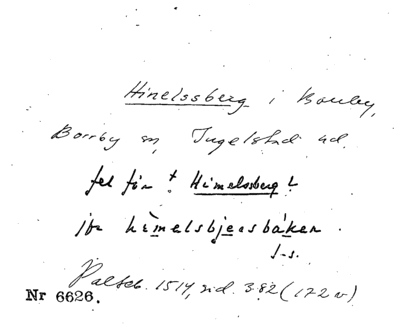 Hinelssberg i Bonby,
Borrby sn, Ingelstad hd.
fel för † Himelsberg?
jfr hìmelsbjersbáken.
J-s.
Paltsb. 1514, sid. 382 (172 v)
Nr 6626.